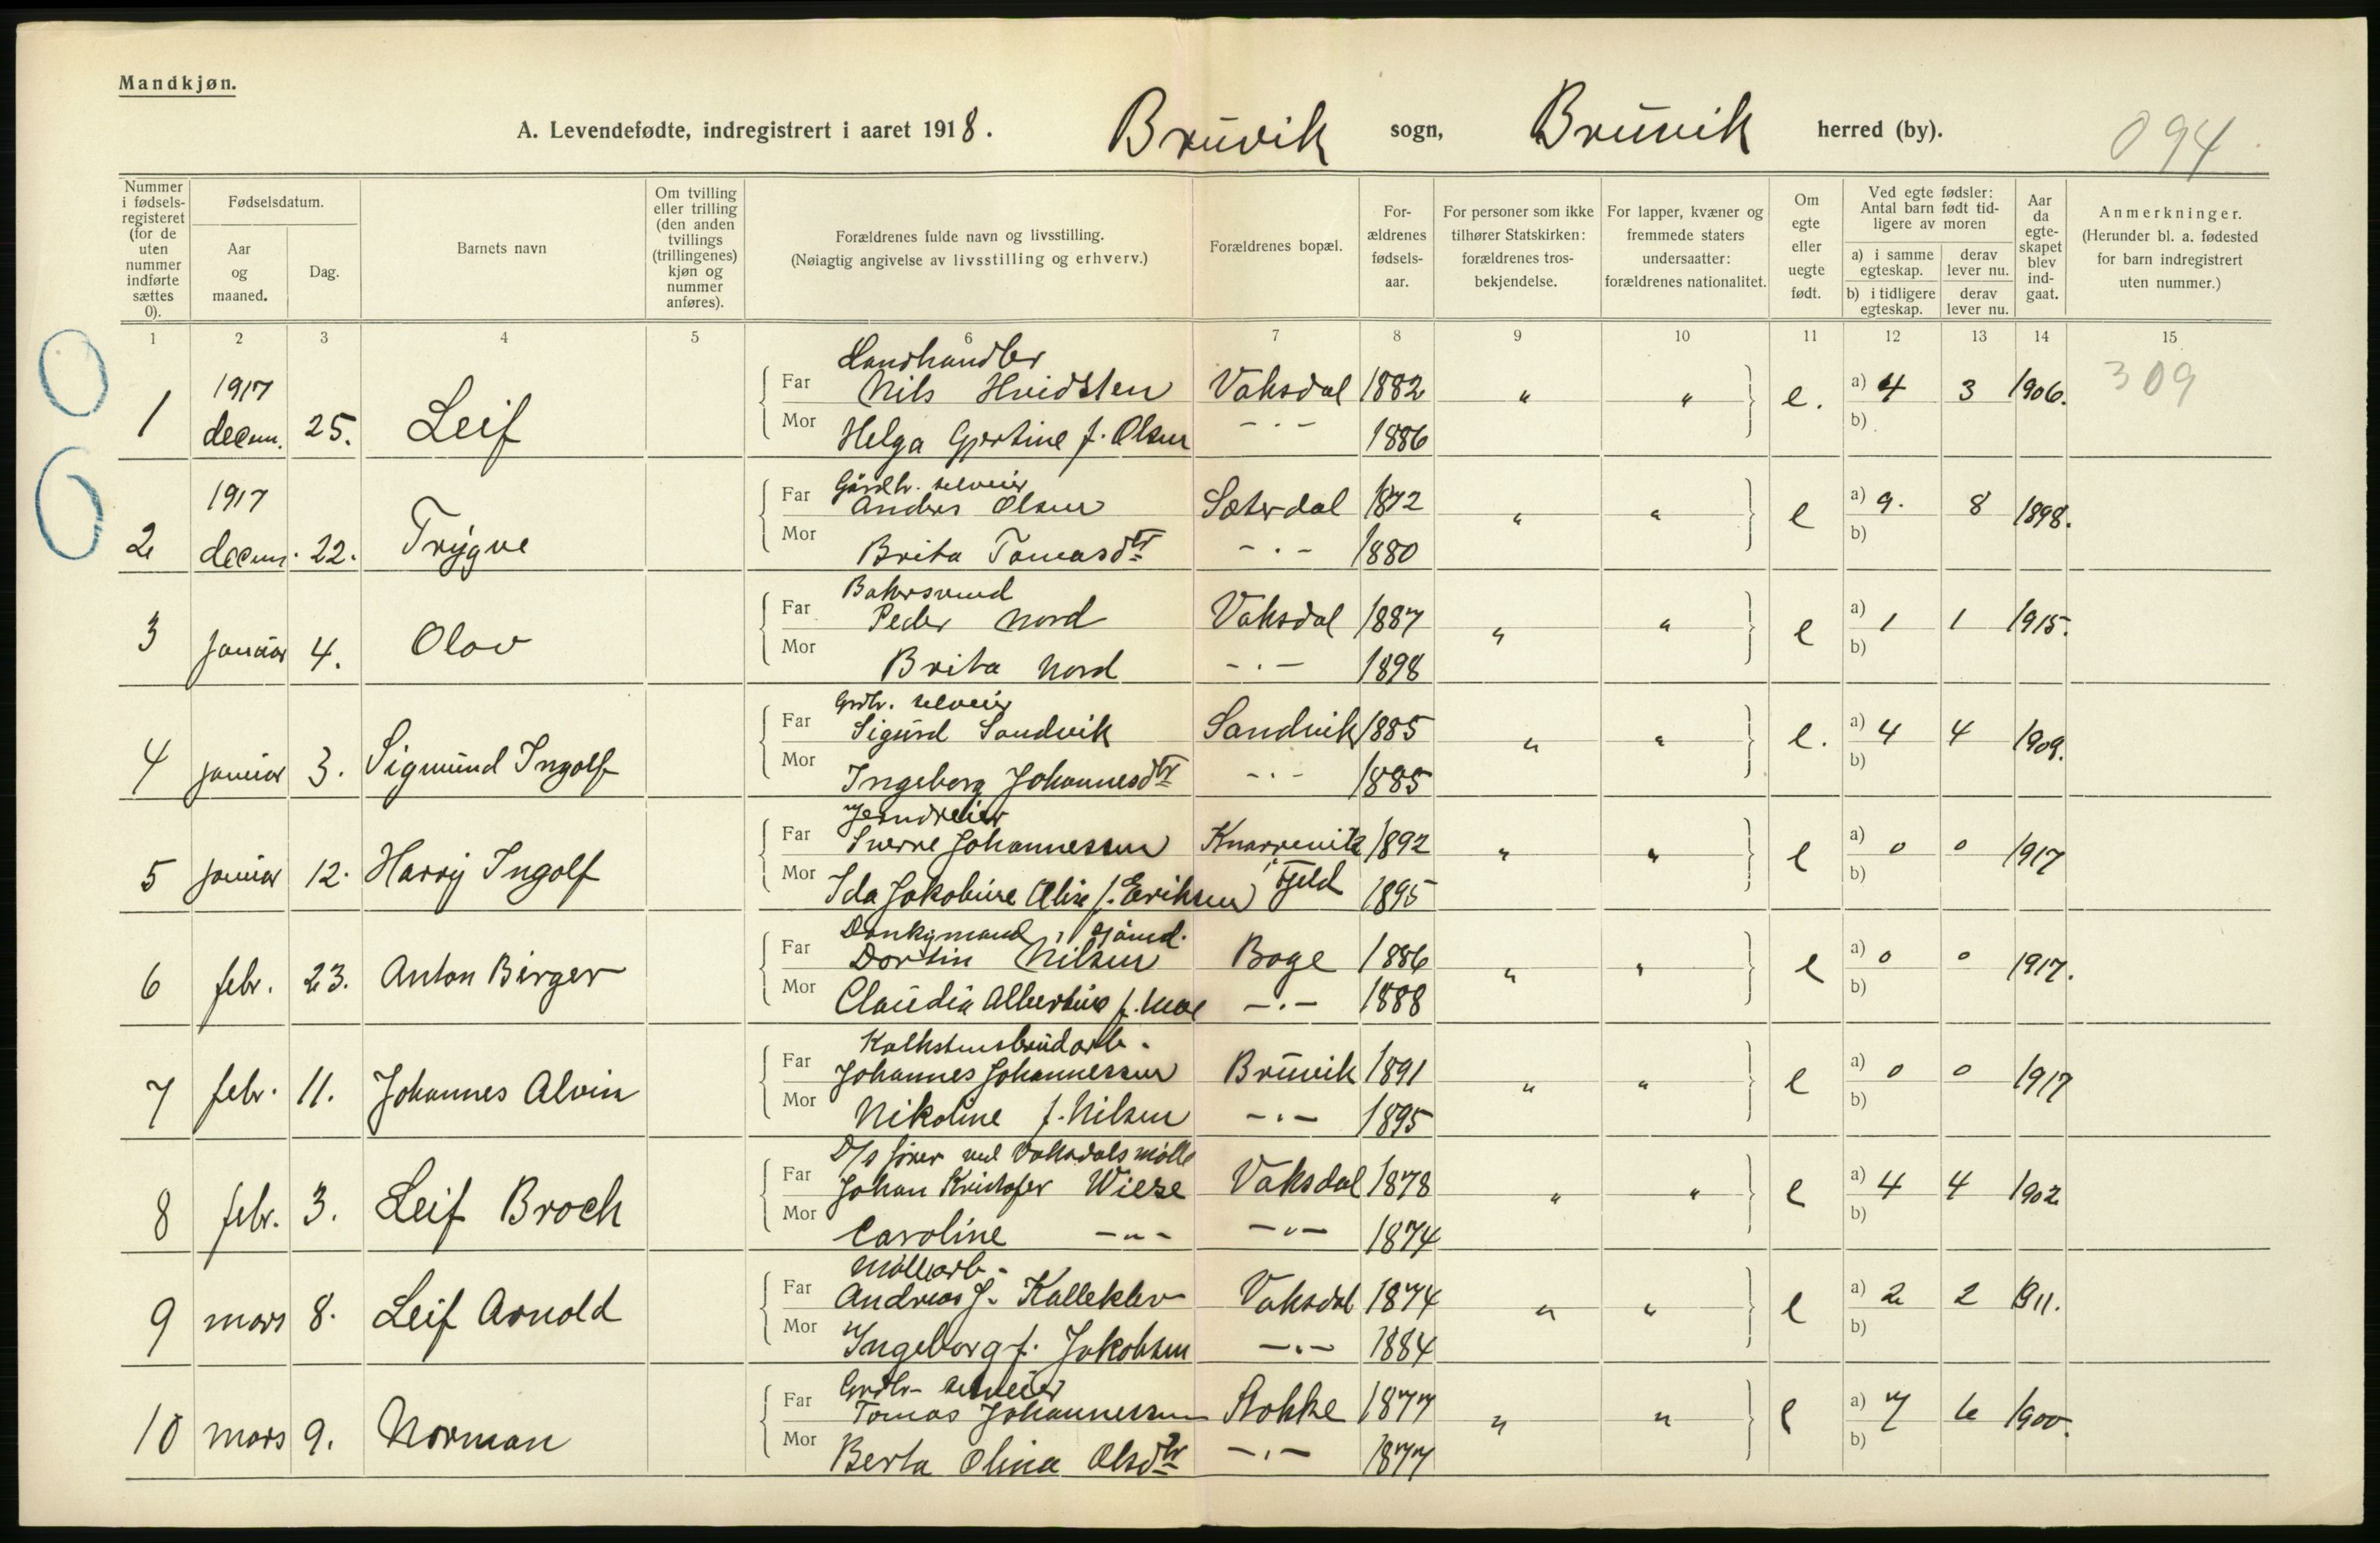 Mandkjøn.
A. Levendefødte, indregistrert i aaret 1918. Bruvik sogn, Bruvik herred (by). 094
Nummer i fødsels-registeret (for de uten nummer indførte sættes 0).
Fødselsdatum.
Aar og maaned.
Dag.
Barnets navn
Om tvilling eller trilling (den anden tvillings (trillingenes) kjøn og nummer anføres).
Forældrenes fulde navn og livsstilling.
(Nøiagtig angivelse av livsstilling og erhverv.)
Forældrenes bopæl.
For-ældrenes fødsels-aar.
For personer som ikke tilhører Statskirken: forældrenes tros-bekjendelse.
For lapper, kvæner og fremmede staters undersaatter: forældrenes nationalitet.
Om egte eller uegte født.
Ved egte fødsler: Antal barn født tid-ligere av moren
a) i samme egteskap. derav lever nu.
b) i tidligere egteskap. derav lever nu.
Aar da egte-skapet blev ind-gaat.
Anmerkninger.
(Herunder bl. a. fødested for barn indregistrert uten nummer.)
1 2 3 4 5 6 7 8 9 10 11 12 13 14 15
Landhandler
1917 Far Nils Hvidsten Vaksdal 1882 " " e. a) 4 3 1906. 309
1 decem. 25. Leif Mor Helga Gjertine f. Olsen -"- 1886 b)
Gårdbr. selveier
1917 Far Anders Olsen Sæterdal 1872 " " e a) 9. 8 1898.
2 decem. 22. Trygve Mor Brita Tomasdtr -"- 1880 b)
Bakersvend
Far Peder Nord Vaksdal 1887 " " e a) 1 1 1915.
3 januar 4. Olav Mor Brita Nord -"- 1898 b)
Grdbr. selveier
Far Sigurd Sandvik Sandvik 1885 " " e. a) 4 4 1909.
4 januar 3. Sigmund Ingolf Mor Ingeborg Johannesdtr -"- 1885 b)
Jerndreier
Far Sverre Johannessen Knarrevik 1892 " " e a) 0 0 1917
5 januar 12. Harry Ingolf Mor Ida Jakobine Elise f. Eriksen i Fjeld 1895 b)
Donkymand, sjømd.
Far Dortin Nilsen Boge 1886 " " e a) 0 0 1917.
6 febr. 23. Anton Birger Mor Claudia Albertine f. Moe -"- 1888 b)
Kalkstensbrudarb.
Far Johannes Johannessen Bruvik 1891 " " e a) 0 0 1917
7 febr. 11. Johannes Alvin Mor Nikoline f. Nilsen -"- 1895 b)
D/s fører ved Vaksdals mølle
Far Johan Kristofer Wiese Vaksdal 1878 " " e a) 4 4 1902
8 febr. 3. Leif Broch Mor Caroline -"- -"- 1874 b)
Møllearb.
Far Andreas J. Kalleklev Vaksdal 1874 " " e a) 2 2 1911.
9 mars 8. Leif Arnold Mor Ingeborg f. Jakobsen -"- 1884 b)
Grdbr. selveier
Far Tomas Johannessen Stokke 1877 " " e a) 7 6 1900.
10 mars 9. Norman Mor Berta Olina Olsdtr -"- 1877 b)